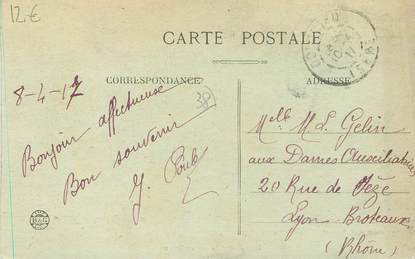 12€
CARTE POSTALE
CORRESPONDANCE
ADRESSE
8-4-17
Bonjour affectueuse
Bon souvenir
J.
Melle M L Gelin
aux Dames Auxiliatrices
20 Rue de Sèze
Lyon-Broteaux
(Rhône)
B&G